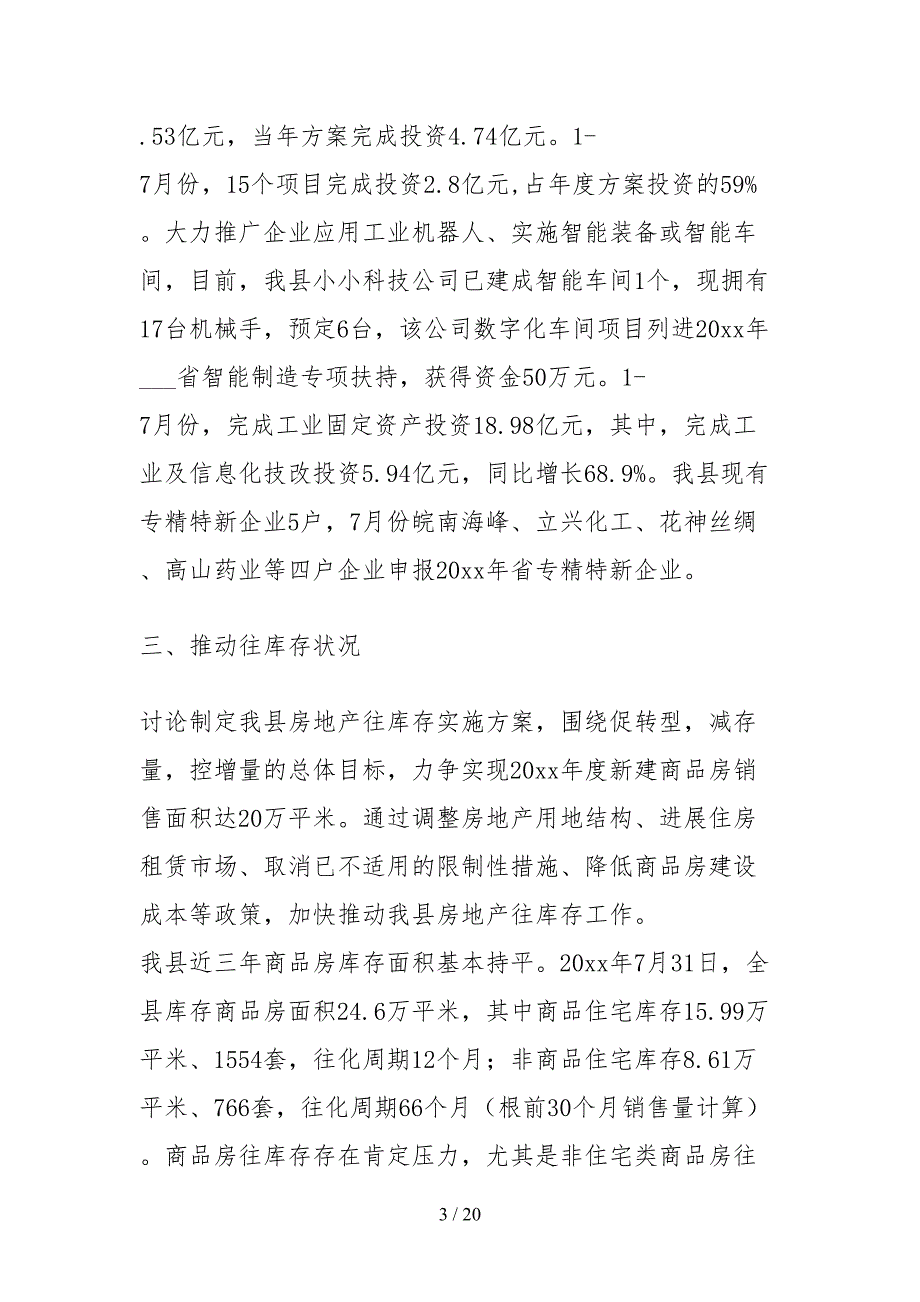 .53亿元，当年方案完成投资4.74亿元。1-
7月份，15个项目完成投资2.8亿元,占年度方案投资的59%
。大力推广企业应用工业机器人、实施智能装备或智能车
间，目前，我县小小科技公司已建成智能车间1个，现拥有
17台机械手，预定6台，该公司数字化车间项目列进20xx年
___省智能制造专项扶持，获得资金50万元。1-
7月份，完成工业固定资产投资18.98亿元，其中，完成工
业及信息化技改投资5.94亿元，同比增长68.9%。我县现有
专精特新企业5户，7月份皖南海峰、立兴化工、花神丝绸
、高山药业等四户企业申报20xx年省专精特新企业。
三、推动往库存状况
讨论制定我县房地产往库存实施方案，围绕促转型，减存
量，控增量的总体目标，力争实现20xx年度新建商品房销
售面积达20万平米。通过调整房地产用地结构、进展住房
租赁市场、取消已不适用的限制性措施、降低商品房建设
成本等政策，加快推动我县房地产往库存工作。
我县近三年商品房库存面积基本持平。20xx年7月31日，全
县库存商品房面积24.6万平米，其中商品住宅库存15.99万
平米、1554套，往化周期12个月；非商品住宅库存8.61万
平米、766套，往化周期66个月（根前30个月销售量计算）
。商品房往库存存在肯定压力，尤其是非住宅类商品房往
3 / 20